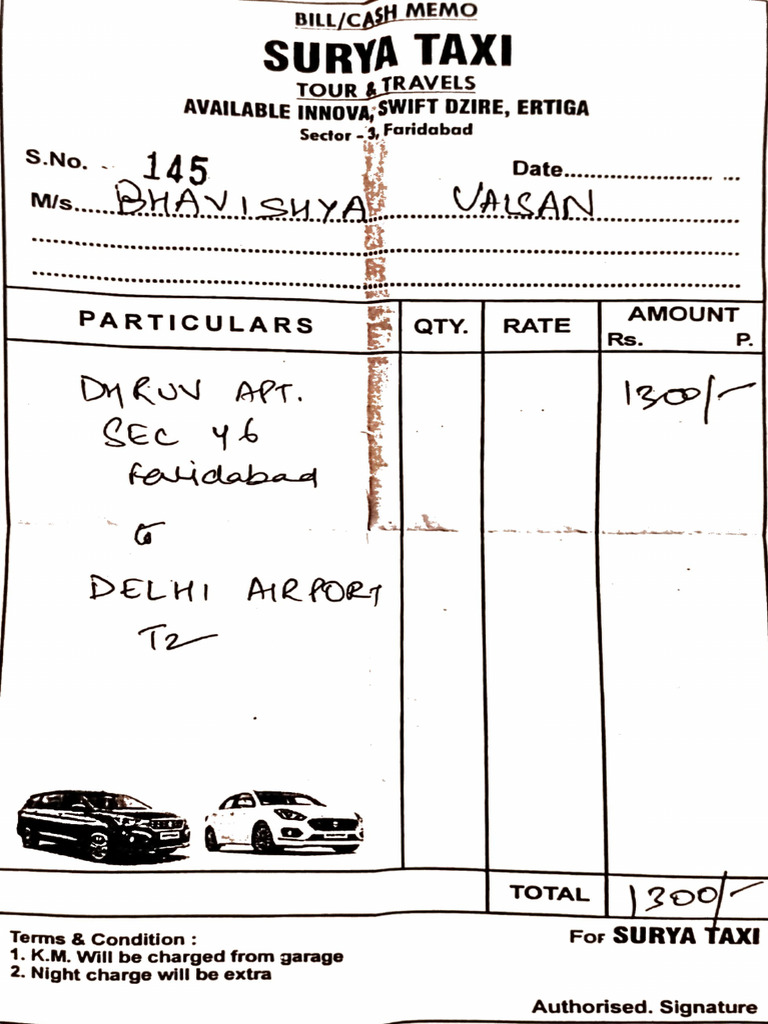 BILL/CASH MEMO
SURYA TAXI
TOUR & TRAVELS
AVAILABLE INNOVA, SWIFT DZIRE, ERTIGA
Sector - 3, Faridabad
S.No. 145 Date
M/s. BHAVISHYA VALSAN
PARTICULARS QTY. RATE AMOUNT
Rs. P.
DHRUV APT. 1300/-
SEC 46
Faridabad
to
DELHI AIRPORT
T2
TOTAL 1300/-
Terms & Condition : For SURYA TAXI
1. K.M. Will be charged from garage
2. Night charge will be extra
Authorised. Signature